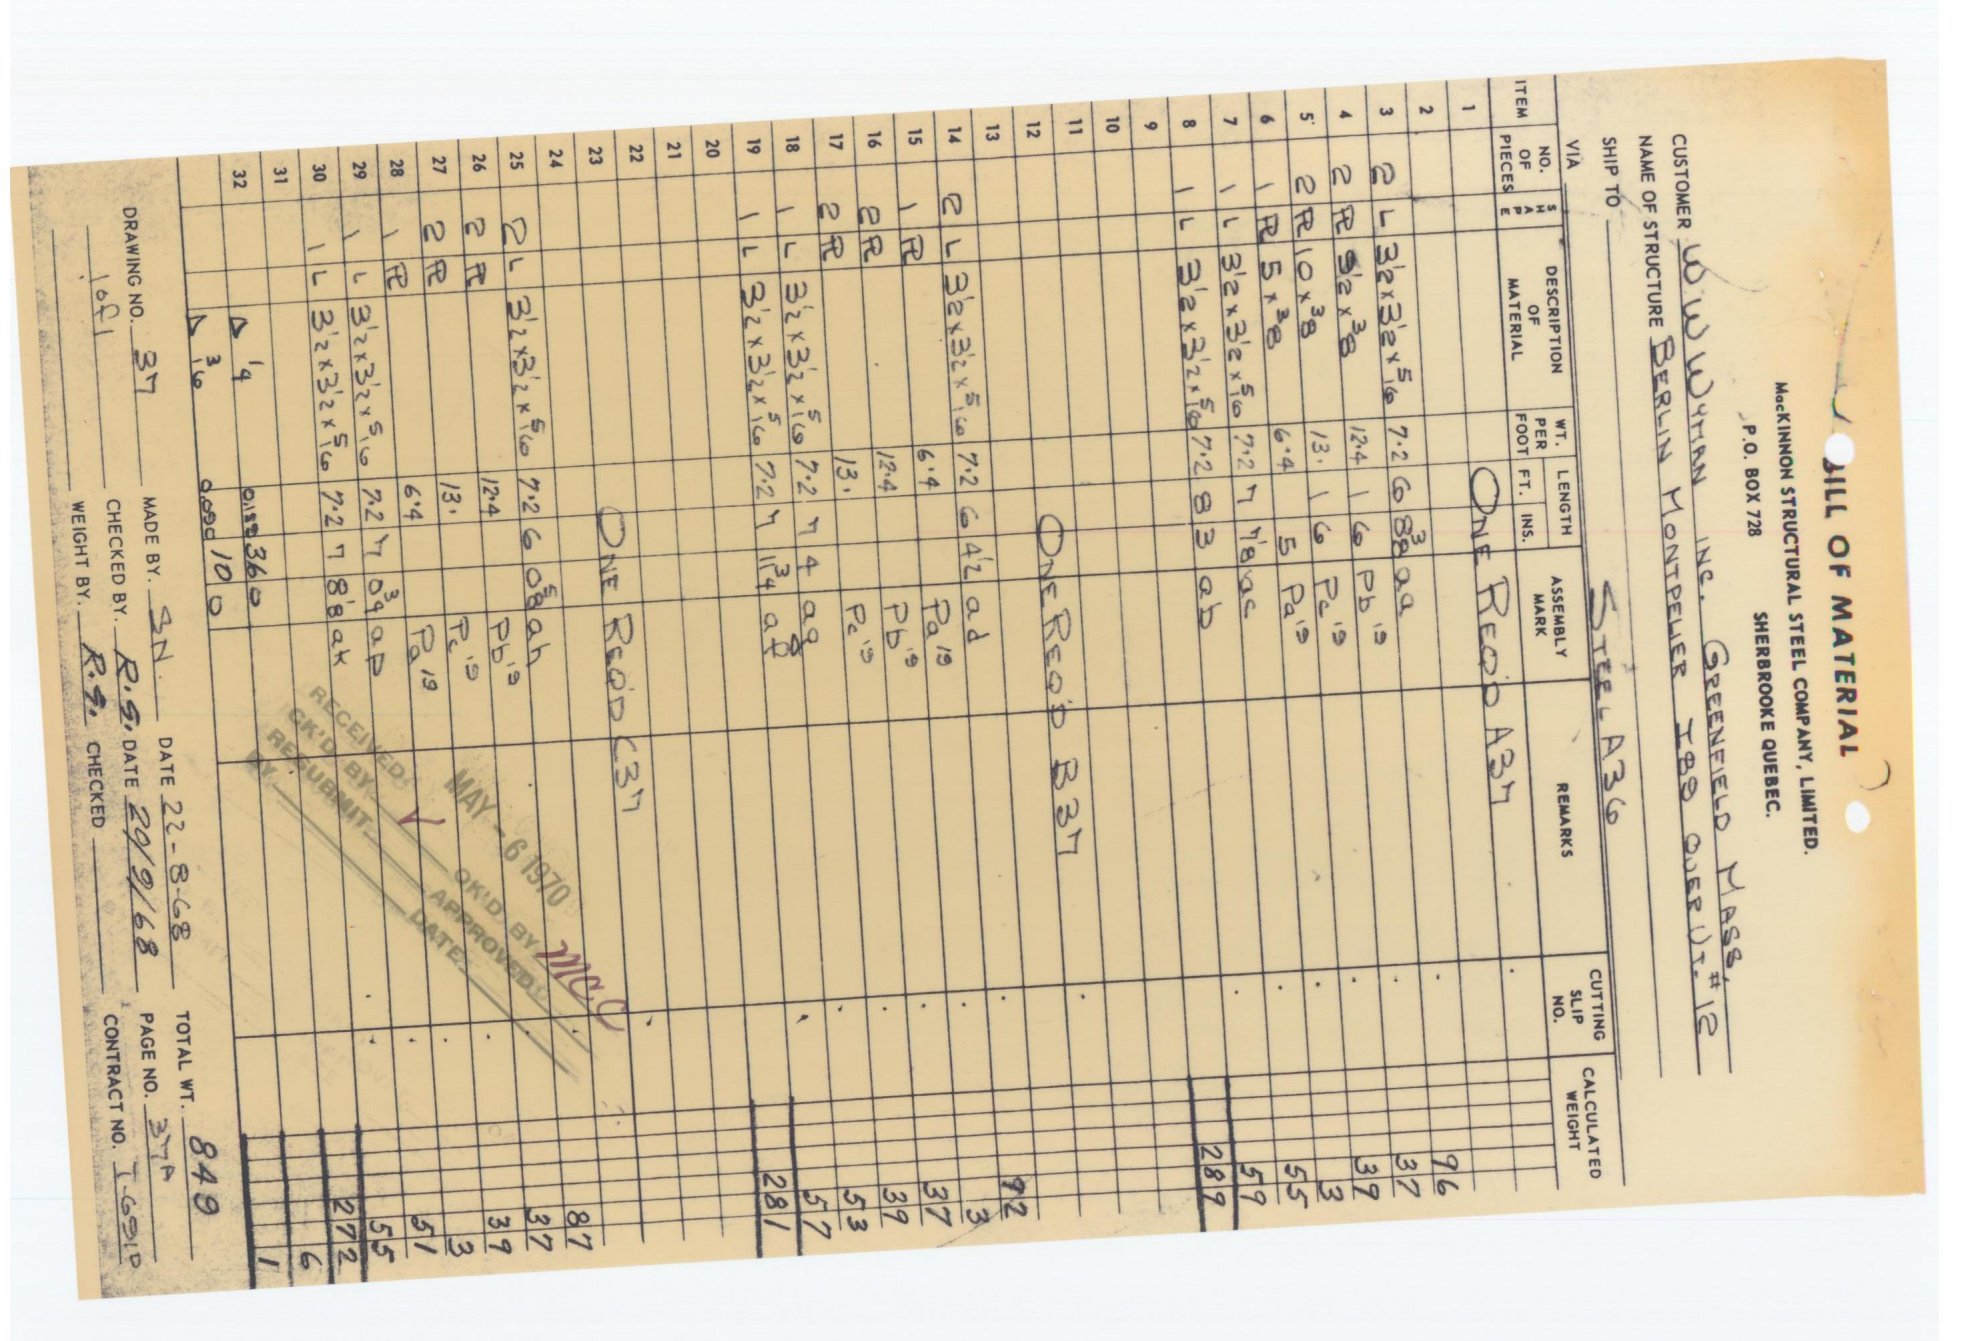 BILL OF MATERIAL
MacKINNON STRUCTURAL STEEL COMPANY, LIMITED.
P.O. BOX 728 SHERBROOKE QUEBEC.
CUSTOMER W W WYMAN INC. GREENFIELD MASS.
NAME OF STRUCTURE BERLIN MONTPELIER I89 OVER VT. #12
SHIP TO
VIA STEEL A36
ITEM NO. OF PIECES SHAPE DESCRIPTION OF MATERIAL WT. PER FOOT LENGTH FT. INS. ASSEMBLY MARK REMARKS CUTTING SLIP NO. CALCULATED WEIGHT
1 ONE REQ'D A37
2
3 2 L 3½ x 3½ x 5/16 7.2 6 8 3/8 aa 96
4 2 PL 9½ x 3/8 12.4 1 6 Pb 19 37
5 2 PL 10 x 3/8 13. 1 6 Pc 19 39
6 1 PL 5 x 3/8 6.4 5 Pa 19 3
7 1 L 3½ x 3½ x 5/16 7.2 7 7/8 ac 55
8 1 L 3½ x 3½ x 5/16 7.2 8 3 ab 59
9 289
10
11
12 ONE REQ'D B37
13
14 2 L 3½ x 3½ x 5/16 7.2 6 4½ ad 92
15 1 PL 6.4 Pa 19 3
16 2 PL 12.4 Pb 19 37
17 2 PL 13. Pc 19 39
18 1 L 3½ x 3½ x 5/16 7.2 7 4 ag 53
19 1 L 3½ x 3½ x 5/16 7.2 7 11 3/4 af 57
20 281
21
22
23 ONE REQ'D C37
24
25 2 L 3½ x 3½ x 5/16 7.2 6 0 5/8 ah 87
26 2 PL 12.4 Pb 19 37
27 2 PL 13. Pc 19 39
28 1 PL 6.4 Pa 19 3
29 1 L 3½ x 3½ x 5/16 7.2 7 0 3/4 ap 51
30 1 L 3½ x 3½ x 5/16 7.2 7 8 1/8 ak 55
31 272
32 Δ 1/4 36 0 6
Δ 3/16 10 0 1
RECEIVED MAY - 6 1970
CK'D BY OK'D BY MCC
RESUBMIT APPROVED
BY DATE
DRAWING NO. 37 MADE BY. SN. DATE 22-8-68 TOTAL WT. 849
1 of 1 CHECKED BY. R.G. DATE 20/9/68 PAGE NO. 37A
WEIGHT BY. R.G. CHECKED CONTRACT NO.